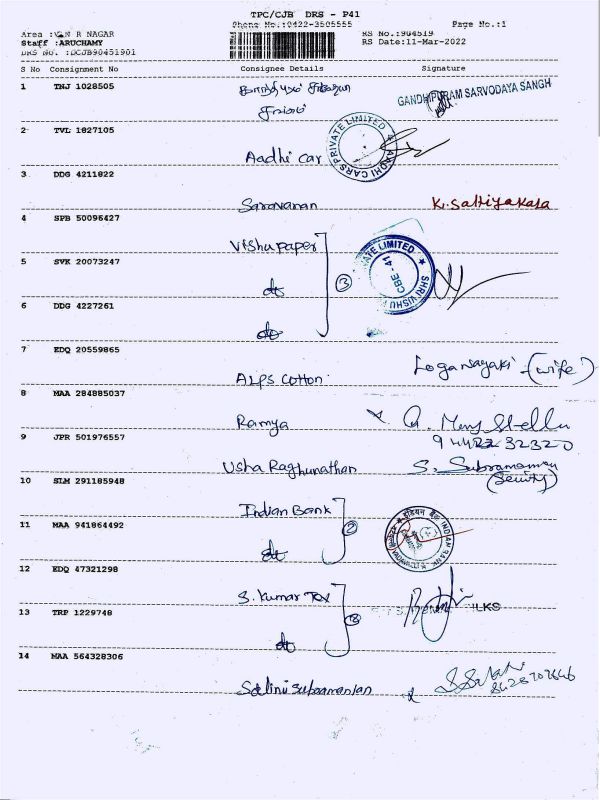 TPC/CJB DRS - P41
Phone No.:0422-3505555 Page No.:1
Area :V.N R NAGAR RS No :904519
Staff :ARUCHAMY RS Date:11-Mar-2022
DRS No. :DCJB90451901
S No Consignment No Consignee Details Signature
1 TNJ 1028505
காந்திபுரம் சர்வோதய GANDHIPURAM SARVODAYA SANGH
சங்கம்
2 TVL 1827105
Aadhi Car AADHI CARS PRIVATE LIMITED
3 DDG 4211822
Saravanan K. Sathiyakala
4 SPB 50096427
Vishu paper
5 SVK 20073247
do 3 SHRI VISHU PRIVATE LIMITED CBE - 41
6 DDG 4227261
do
7 EDQ 20559865
ALPS Cotton. Loganayaki - (wife)
8 MAA 284885037
Ramya
9 JPR 501976557
Usha Raghunathan S. Subramaniam
(Security)
10 SLM 291185948
Indian Bank
11 MAA 941864492
do 2 इंडियन बैंक INDIAN BANK
12 EDQ 47321298
S. Kumar Tex
13 TRP 1229748
do ILKS
14 MAA 564328306
Salini Subramanian